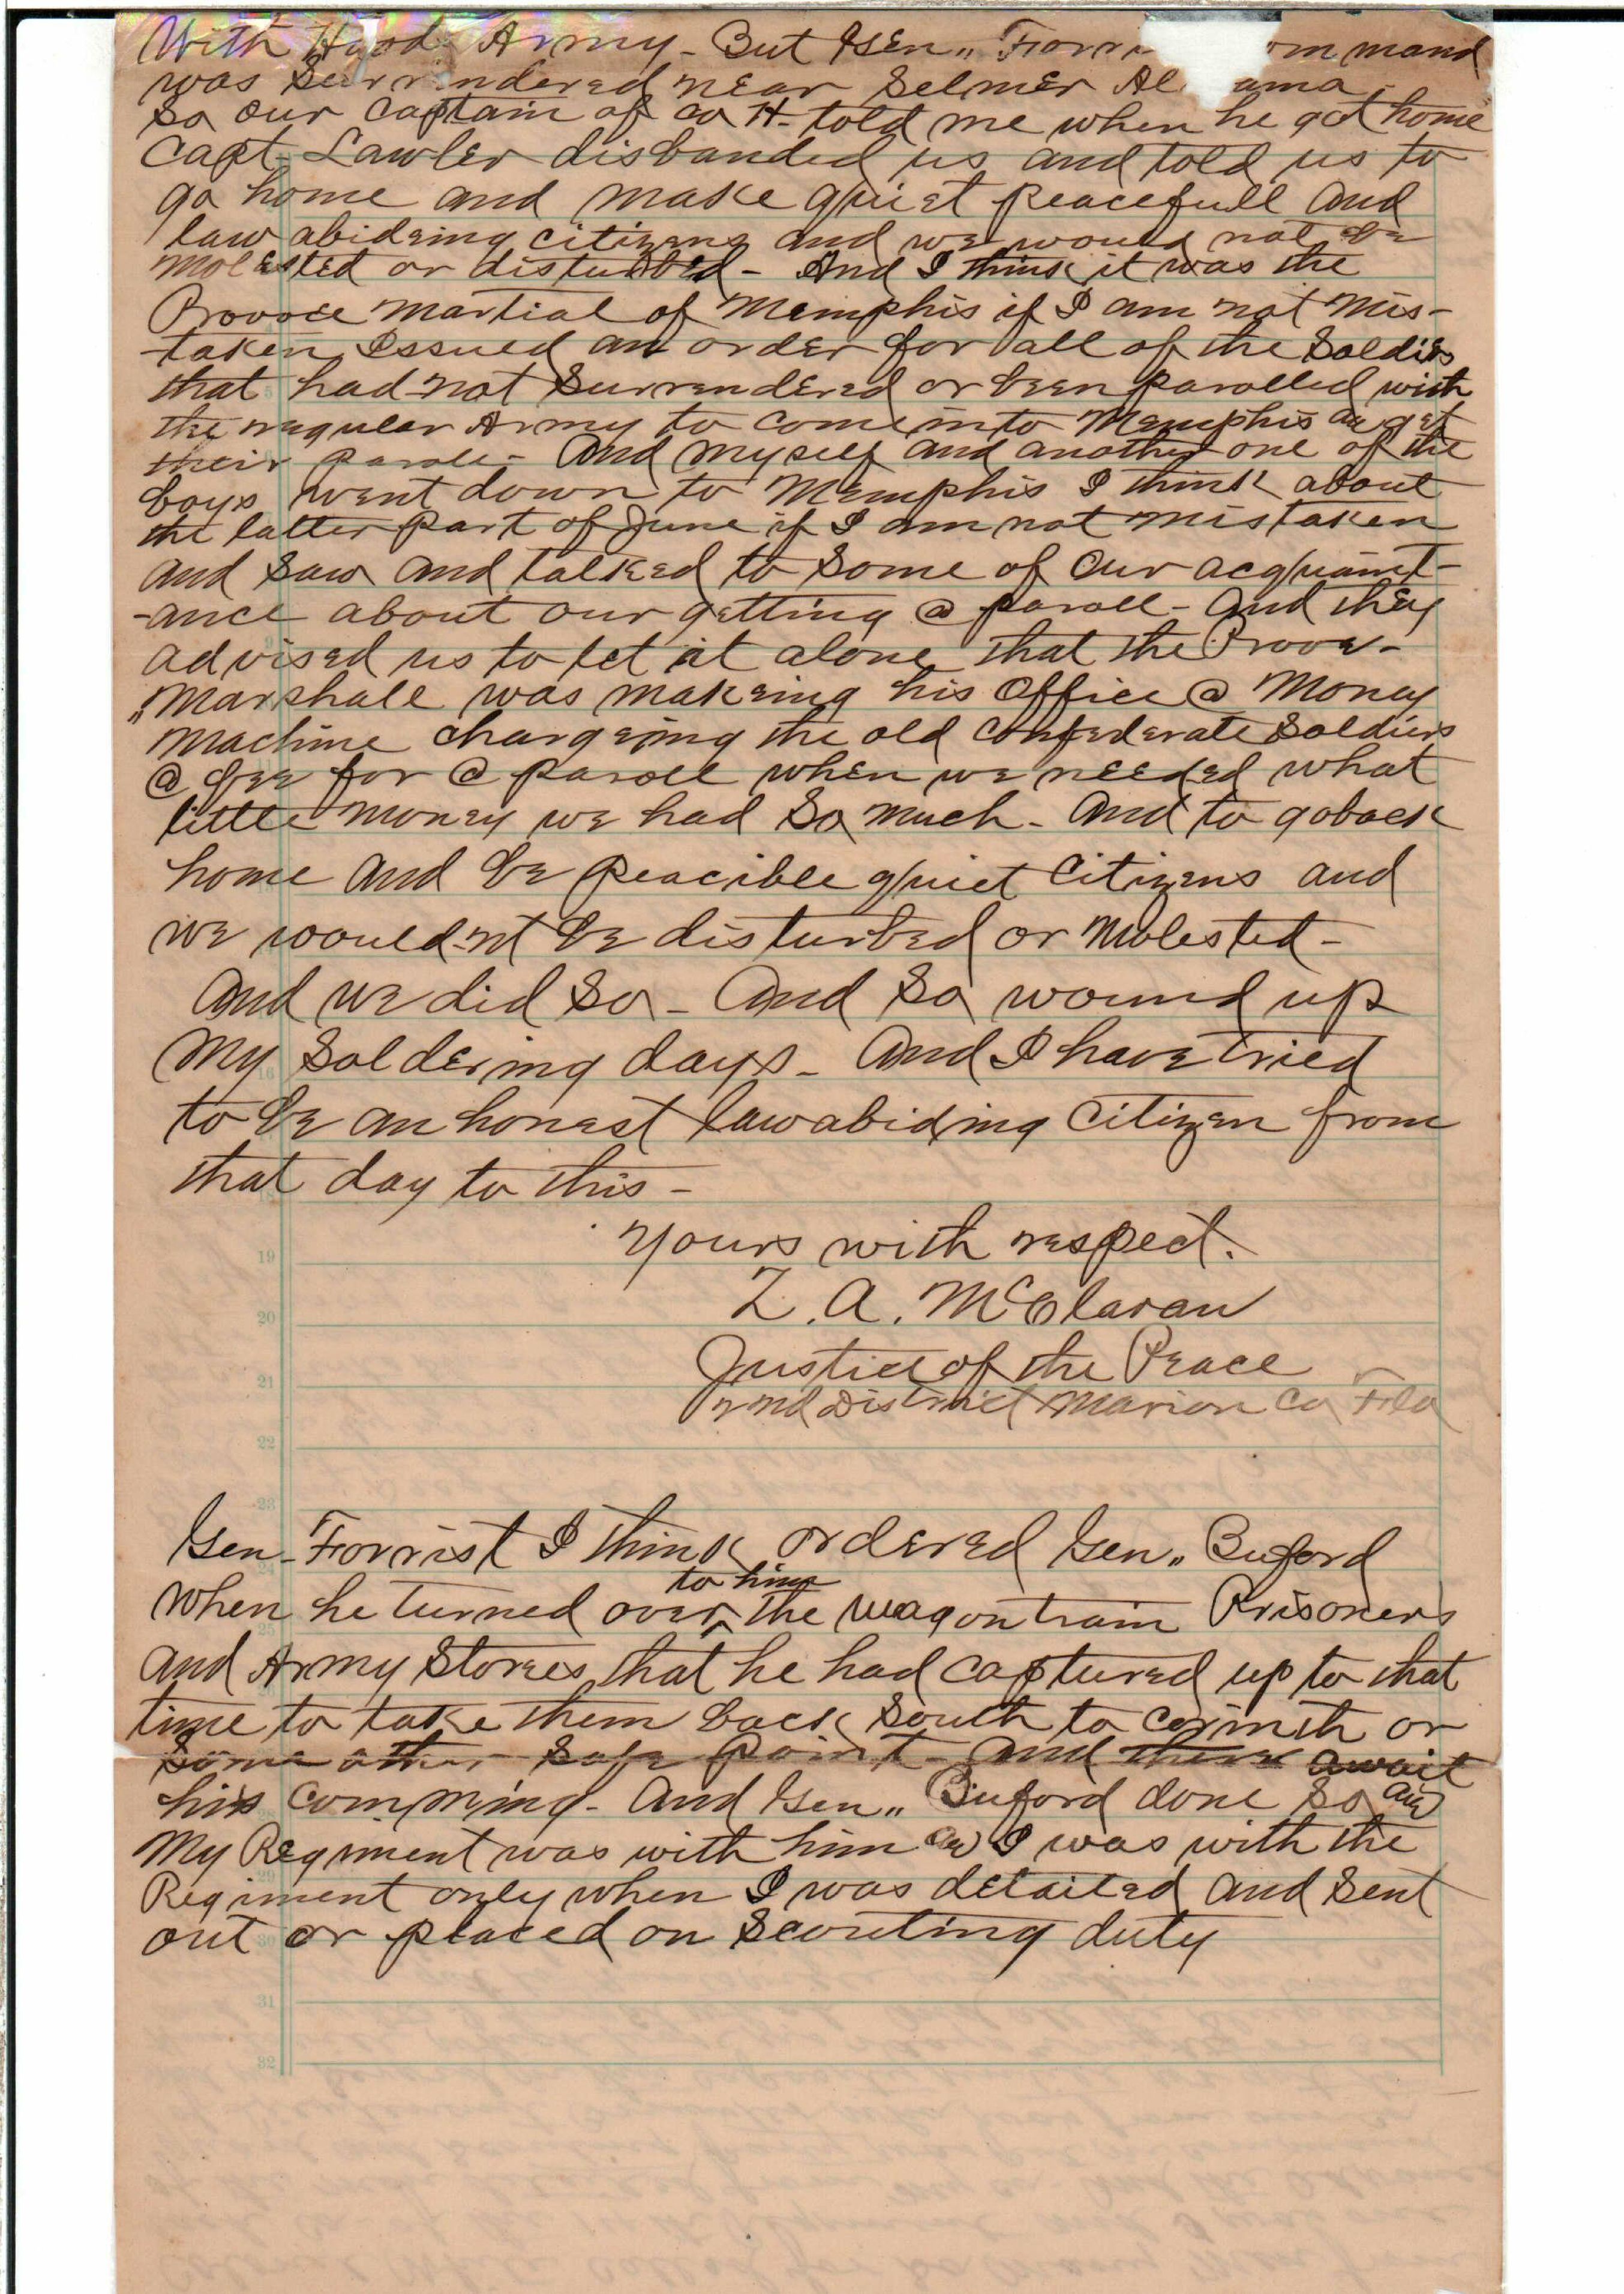 With Hood Army - But Gen,, Forri mmand
was Surrendered near Selmer Al ama
So our Captain of Co H - told me when he got home
Capt - Lawler disbanded us and told us to
go home and make quiet peacefull and
law abideing citizens and we would not be
Molested or disturbed - And I think it was the
Provoce Martial of Memphis if I am not Mis-
taken Issued an order for all of the Soldiers
that had not Surrendered or been parolled with
the regular Army to come into Memphis get
their parole - And myself and another one of the
boys went down to Memphis I think about
the latter part of June if I am not mistaken
and Saw and talked to Some of our acquaint-
-ance about our getting @ paroll - and they
advised us to let it alone that the Prove-
,,Marshall was makeing his Office @ Money
Machine chargeing the old Confederate Soldiers
@ fee for @ paroll when we needed what
little money we had So much - And to go back
home and be peacible quiet Citizens and
we would-nt be disturbed or Molested -
And we did So - And So wound up
My Soldering days - And I have tried
to be an honest law abiding Citizen from
that day to this -
Yours with respect.
Z. A. McClaran
Justice of the Peace
2nd District Marion Co Fla
19
20
21
22
23
Gen - Forrist I think ordered Gen,, Buford
to him
When he turned over ^ the wagon train Prisoners
and Army Stores that he had captured up to that
time to take them back South to Corinth or
Some other Safe Point - and there await
his Comming - And Gen,, Buford done So
My Regiment was with him I was with the
Regiment only when I was detailed and Sent
out or placed on Scouting duty
31
32